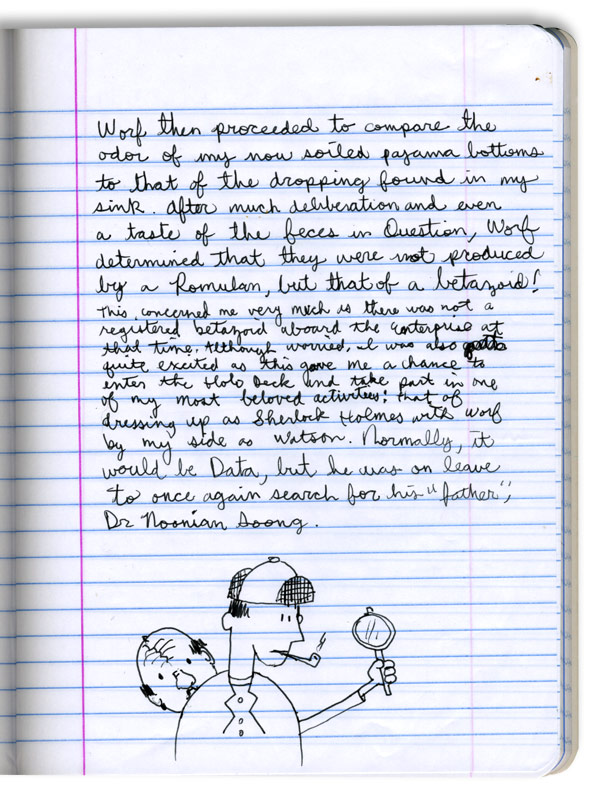 Worf then proceeded to compare the
odor of my now soiled pajama bottoms
to that of the dropping found in my
sink. After much deliberation and even
a taste of the feces in Question, Worf
determined that they were not produced
by a Romulan, but that of a betazoid!
This concerned me very much is there was not a
registered betazoid aboard the enterprise at
that time. Although worried, I was also
quite excited as this gave me a chance to
enter the Holo Deck and take part in one
of my most beloved activities: that of
dressing up as Sherlock Holmes with Worf
by my side as Watson. Normally, it
would be Data, but he was on leave
to once again search for his "father",
Dr Noonian Soong.